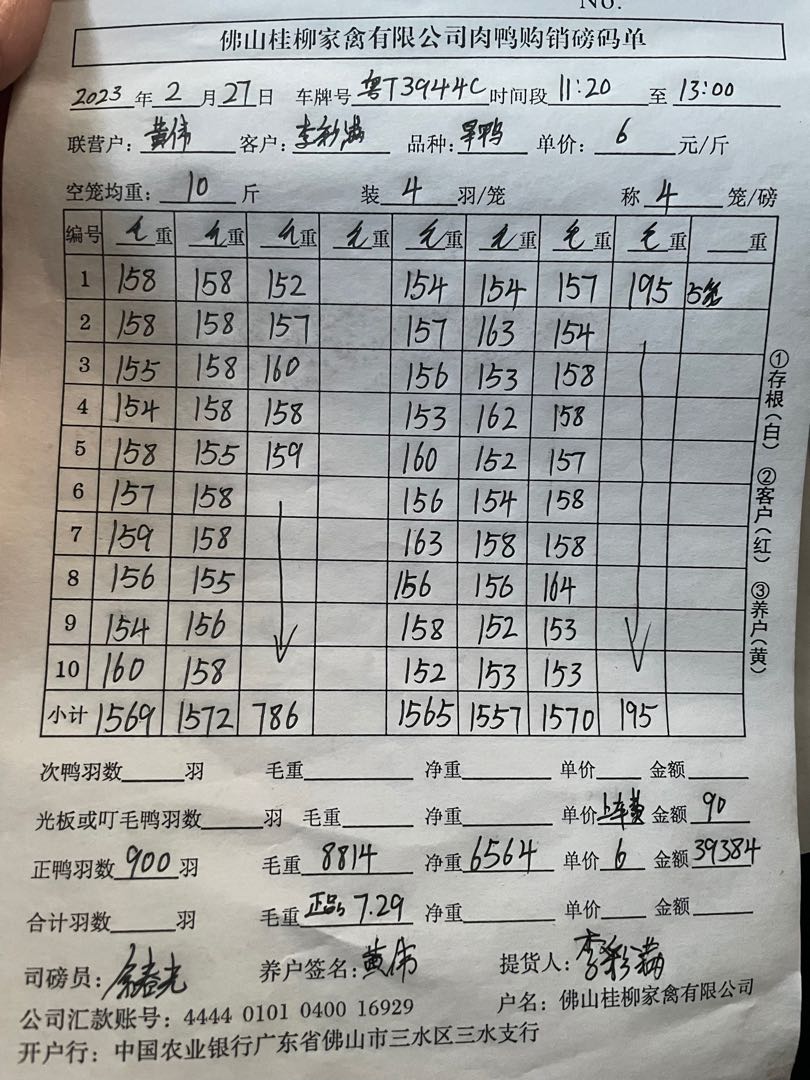 No.
佛山桂柳家禽有限公司肉鸭购销磅码单
2023 年 2 月 27 日 车牌号 粤T3944C 时间段 11:20 至 13:00
联营户: 黄伟 客户: 李彩满 品种: 旱鸭 单价: 6 元/斤
空笼均重: 10 斤 装 4 羽/笼 称 4 笼/磅
编号 毛重 毛重 毛重 毛重 毛重 毛重 毛重 毛重 重
1 158 158 152 154 154 157 195 5笼
2 158 158 157 157 163 154
3 155 158 160 156 153 158
4 154 158 158 153 162 158
5 158 155 159 160 152 157
6 157 158 156 154 158
7 159 158 163 158 158
8 156 155 156 156 164
9 154 156 158 152 153
10 160 158 152 153 153
小计 1569 1572 786 1565 1557 1570 195
次鸭羽数 羽 毛重 净重 单价 金额
光板或叮毛鸭羽数 羽 毛重 净重 单价 上车费 金额 90
正鸭羽数 900 羽 毛重 8814 净重 6564 单价 6 金额 39384
合计羽数 羽 毛重 正品 7.29 净重 单价 金额
司磅员: 养户签名: 黄伟 提货人: 李彩满
公司汇款账号: 4444 0101 0400 16929 户名: 佛山桂柳家禽有限公司
开户行: 中国农业银行广东省佛山市三水区三水支行
①存根(白) ②客户(红) ③养户(黄)